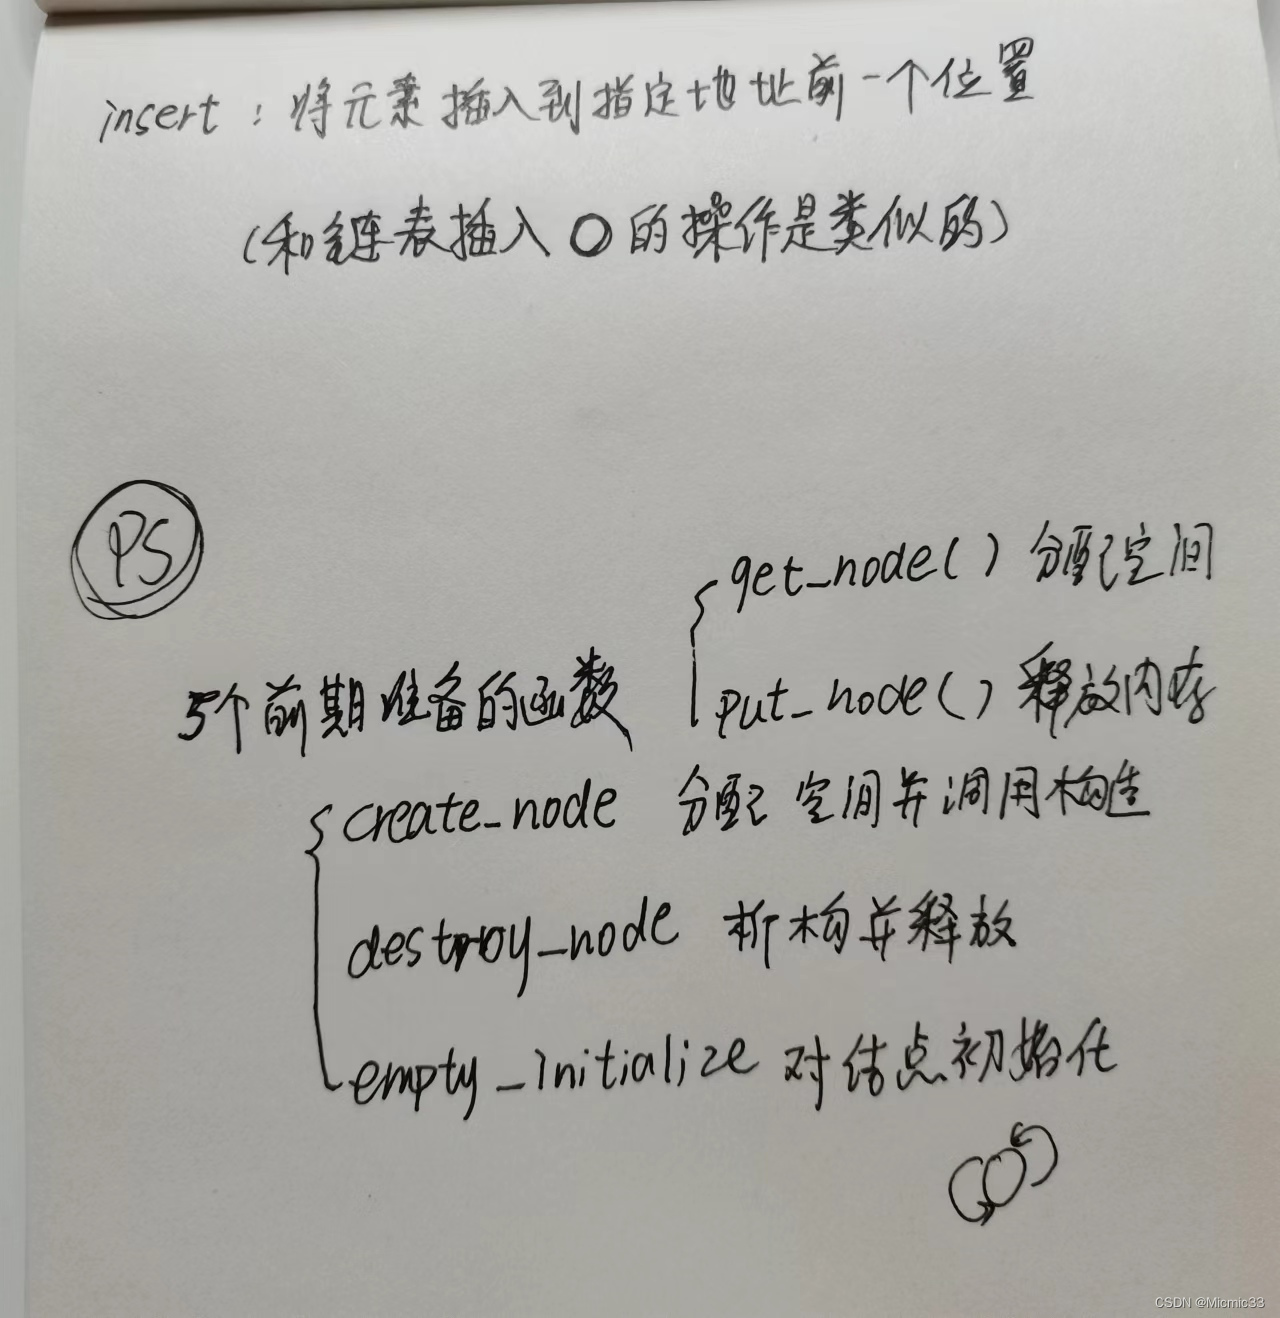 insert：将元素插入到指定地址前一个位置
（和链表插入〇的操作是类似的）
PS
get_node() 分配空间
put_node() 释放内存
5个前期准备的函数
create_node 分配空间并调用构造
destroy_node 析构并释放
empty_initialize 对结点初始化
CSDN @Micmic33